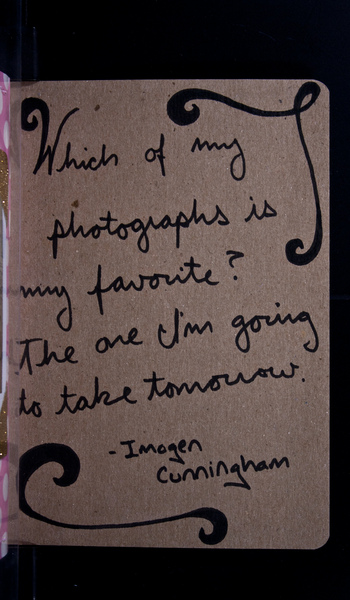 Which of my
photographs is
my favorite?
The one I'm going
to take tomorrow.
-Imogen
Cunningham